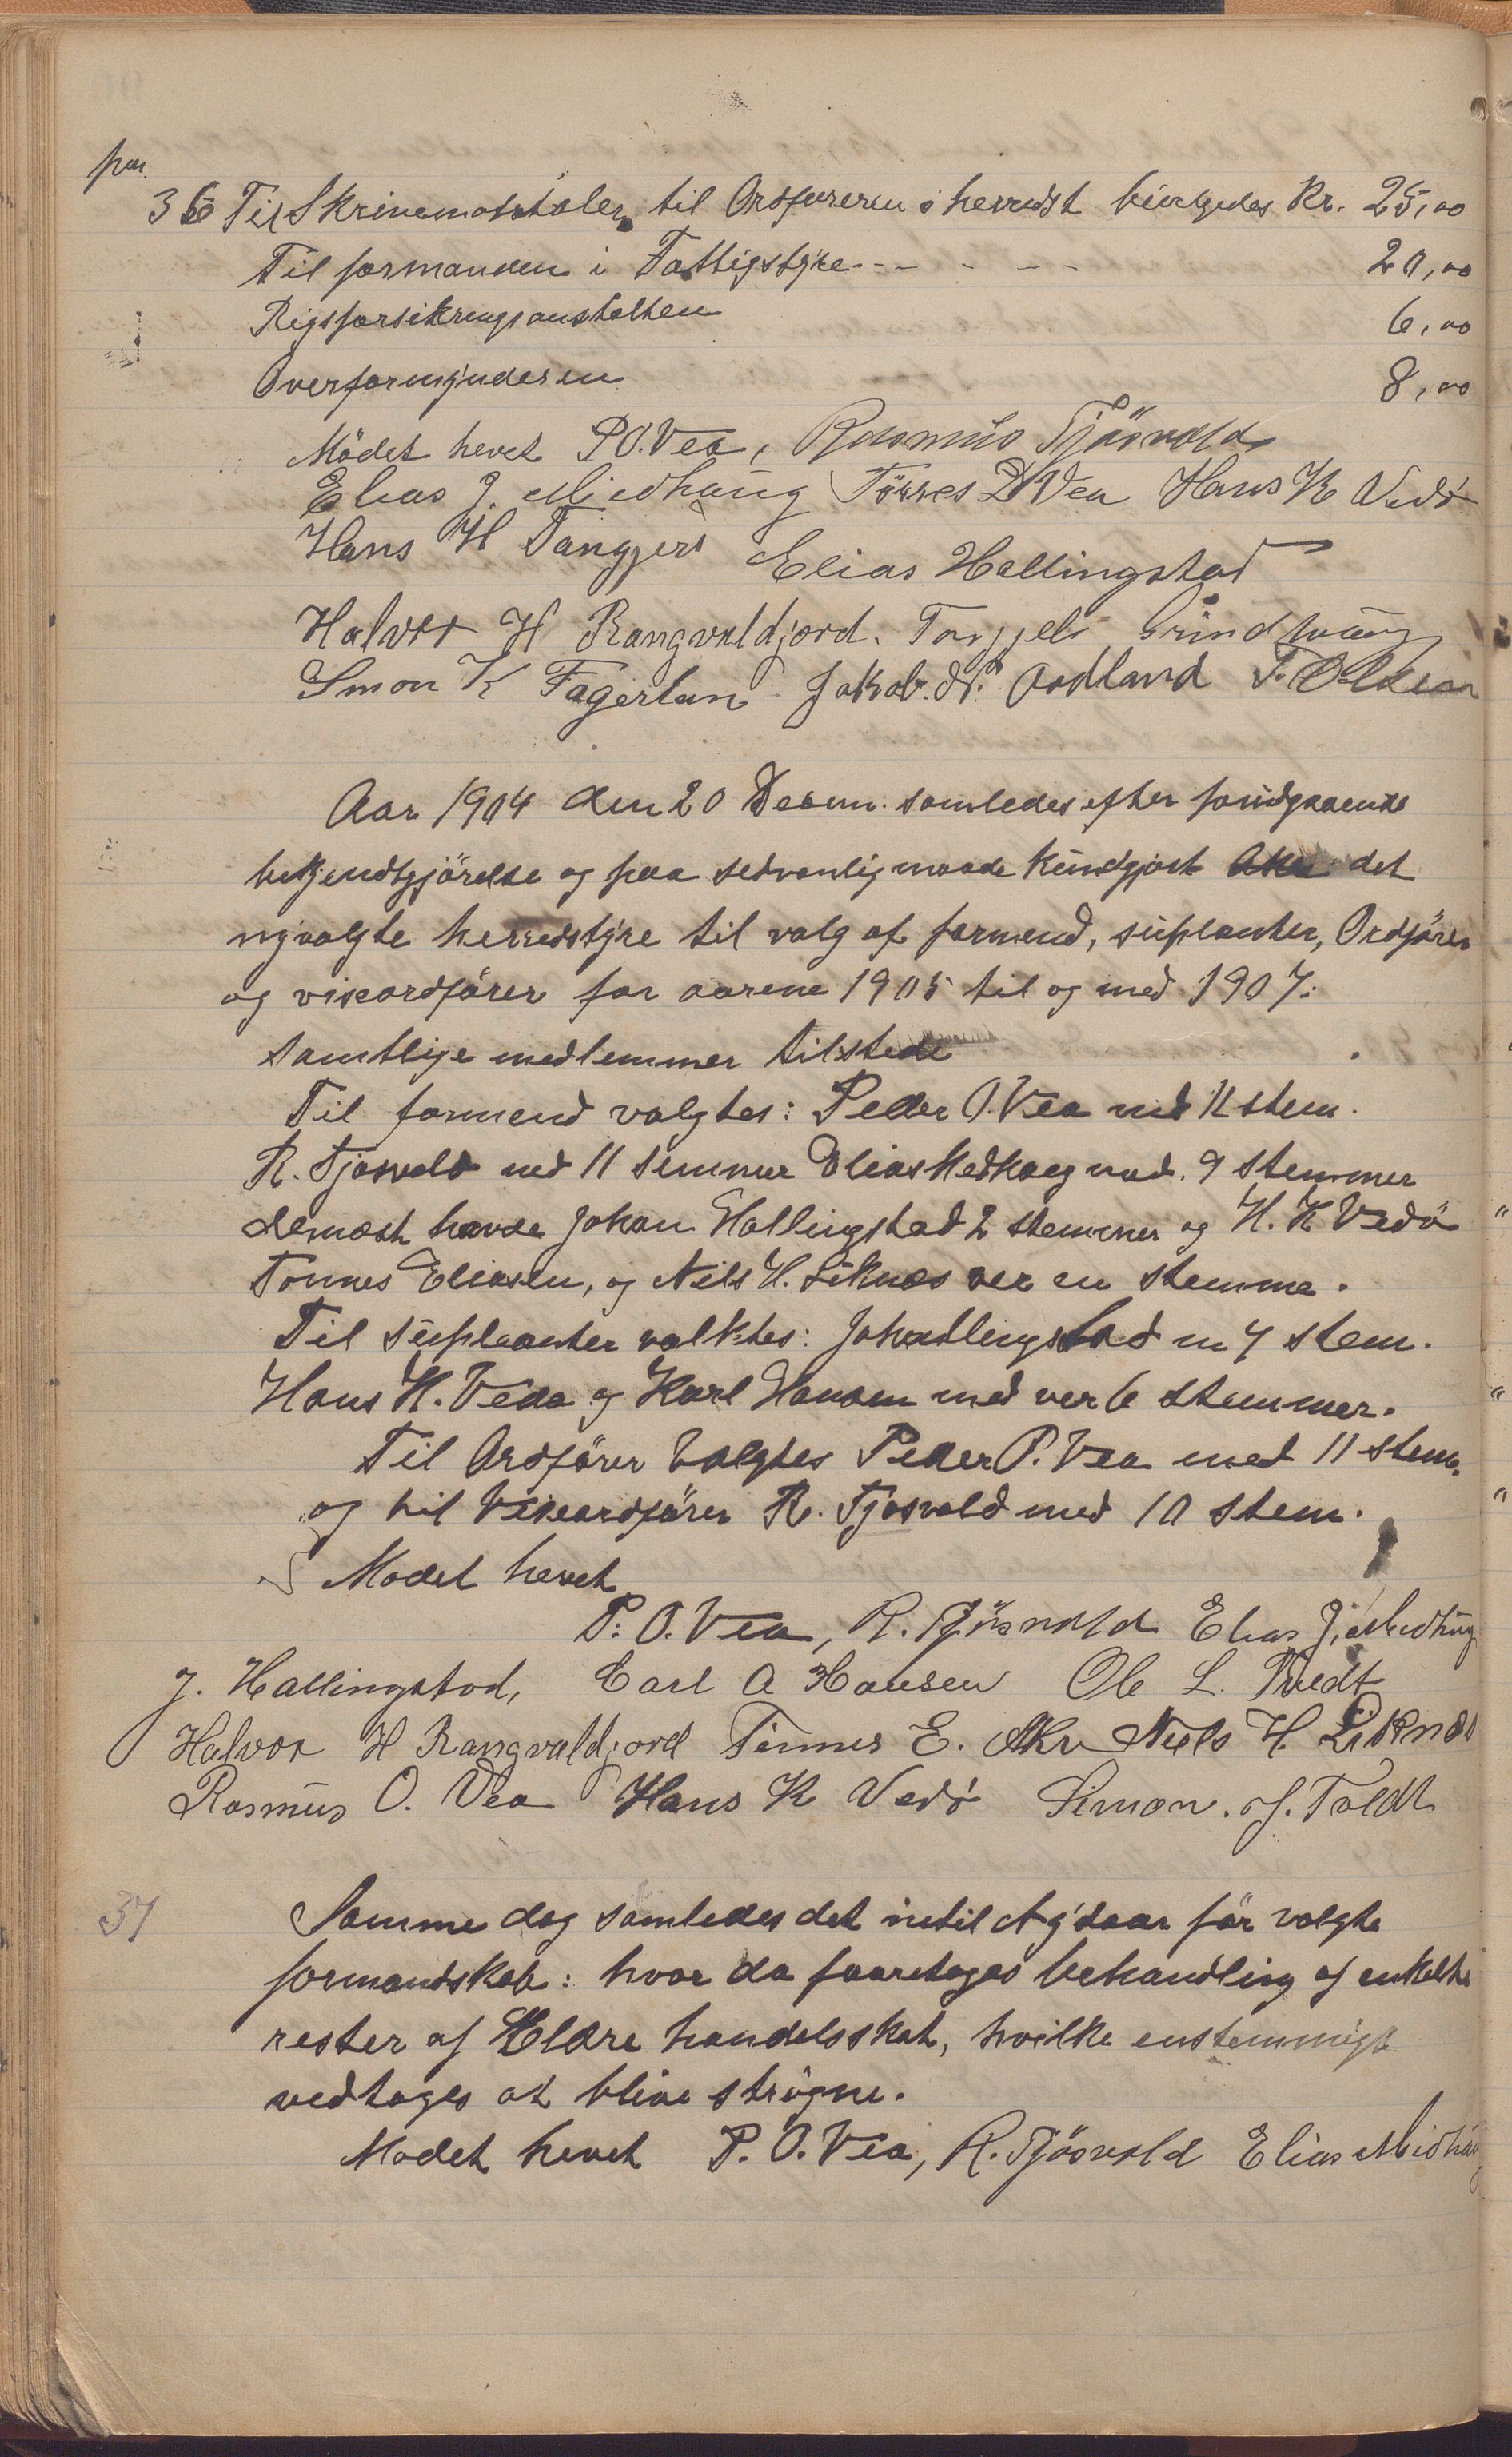 par.
36 Til Skrivematrialer til Ordføreren i herredst bevilgedes Kr. 25,00
Til formanden i Fattigstyre - - - - - 20,00
Rigsforsikringsanstalten 6,00
Overformynderen 8,00
Mödet hevet P O. Vea, Rasmus Tjösvold
Elias J. Miedhaug Törres Vea Hans K Vedø
Hans H Tangjerd Elias Hallingstad
Halvor H Rangvaldjord. Torgjels Grindhaug
Smon K Fagerlan Jakob. N. Aadland T. Olsen
Aar 1904 den 20 Decem. samledes efter forudgaaende
bekjendtgjörelse og paa sedvanlig maade kundgjort det
nyvalgte herredstyre til valg af formend, suplanter, Ordförer
og viseordförer for aarene 1905 til og med 1907.
Samtlige medlemmer tilstede
Til formend valgtes: Peder O. Vea med 11 stem.
R. Tjosvold med 11 stemmer Elias Medhaug med. 9 stemmer
dernæst havde Johan Hallingstad 2 stemmer og H. K Vedö
Tonnes Eliasen, og Nils H. Liknes ver en stemme.
Til Suplanter valktes: Joh Hallingstad m 7 stem.
Hans K. Vedø og Karl Hansen med ver 6 stemmer.
Til Ordförer Valgtes Peder O. Vea med 11 stem.
og til Viseordförer R. Tjosvold med 10 stem.
Modet hevet
P. O. Vea, R. Tjösvold Elias J. Medhaug
J. Hallingstad, Carl A Hansen Ole L. Tvedt
Halvor H Rangvaldjord Tönnes E. Akre Niels H. Liknes
Rasmus O. Vea Hans K Vedø Simon. J. Toldt
37 Samme dag samledes det intil Nytaar för valgte
formandskab: hvor da foaretoges behandling af enkelte
rester af Eldre handelsskat, hvilke enstemmigt
vedtoges at blive strögne.
Modet hevet P. O. Vea, R. Tjösvold Elias Midhaug